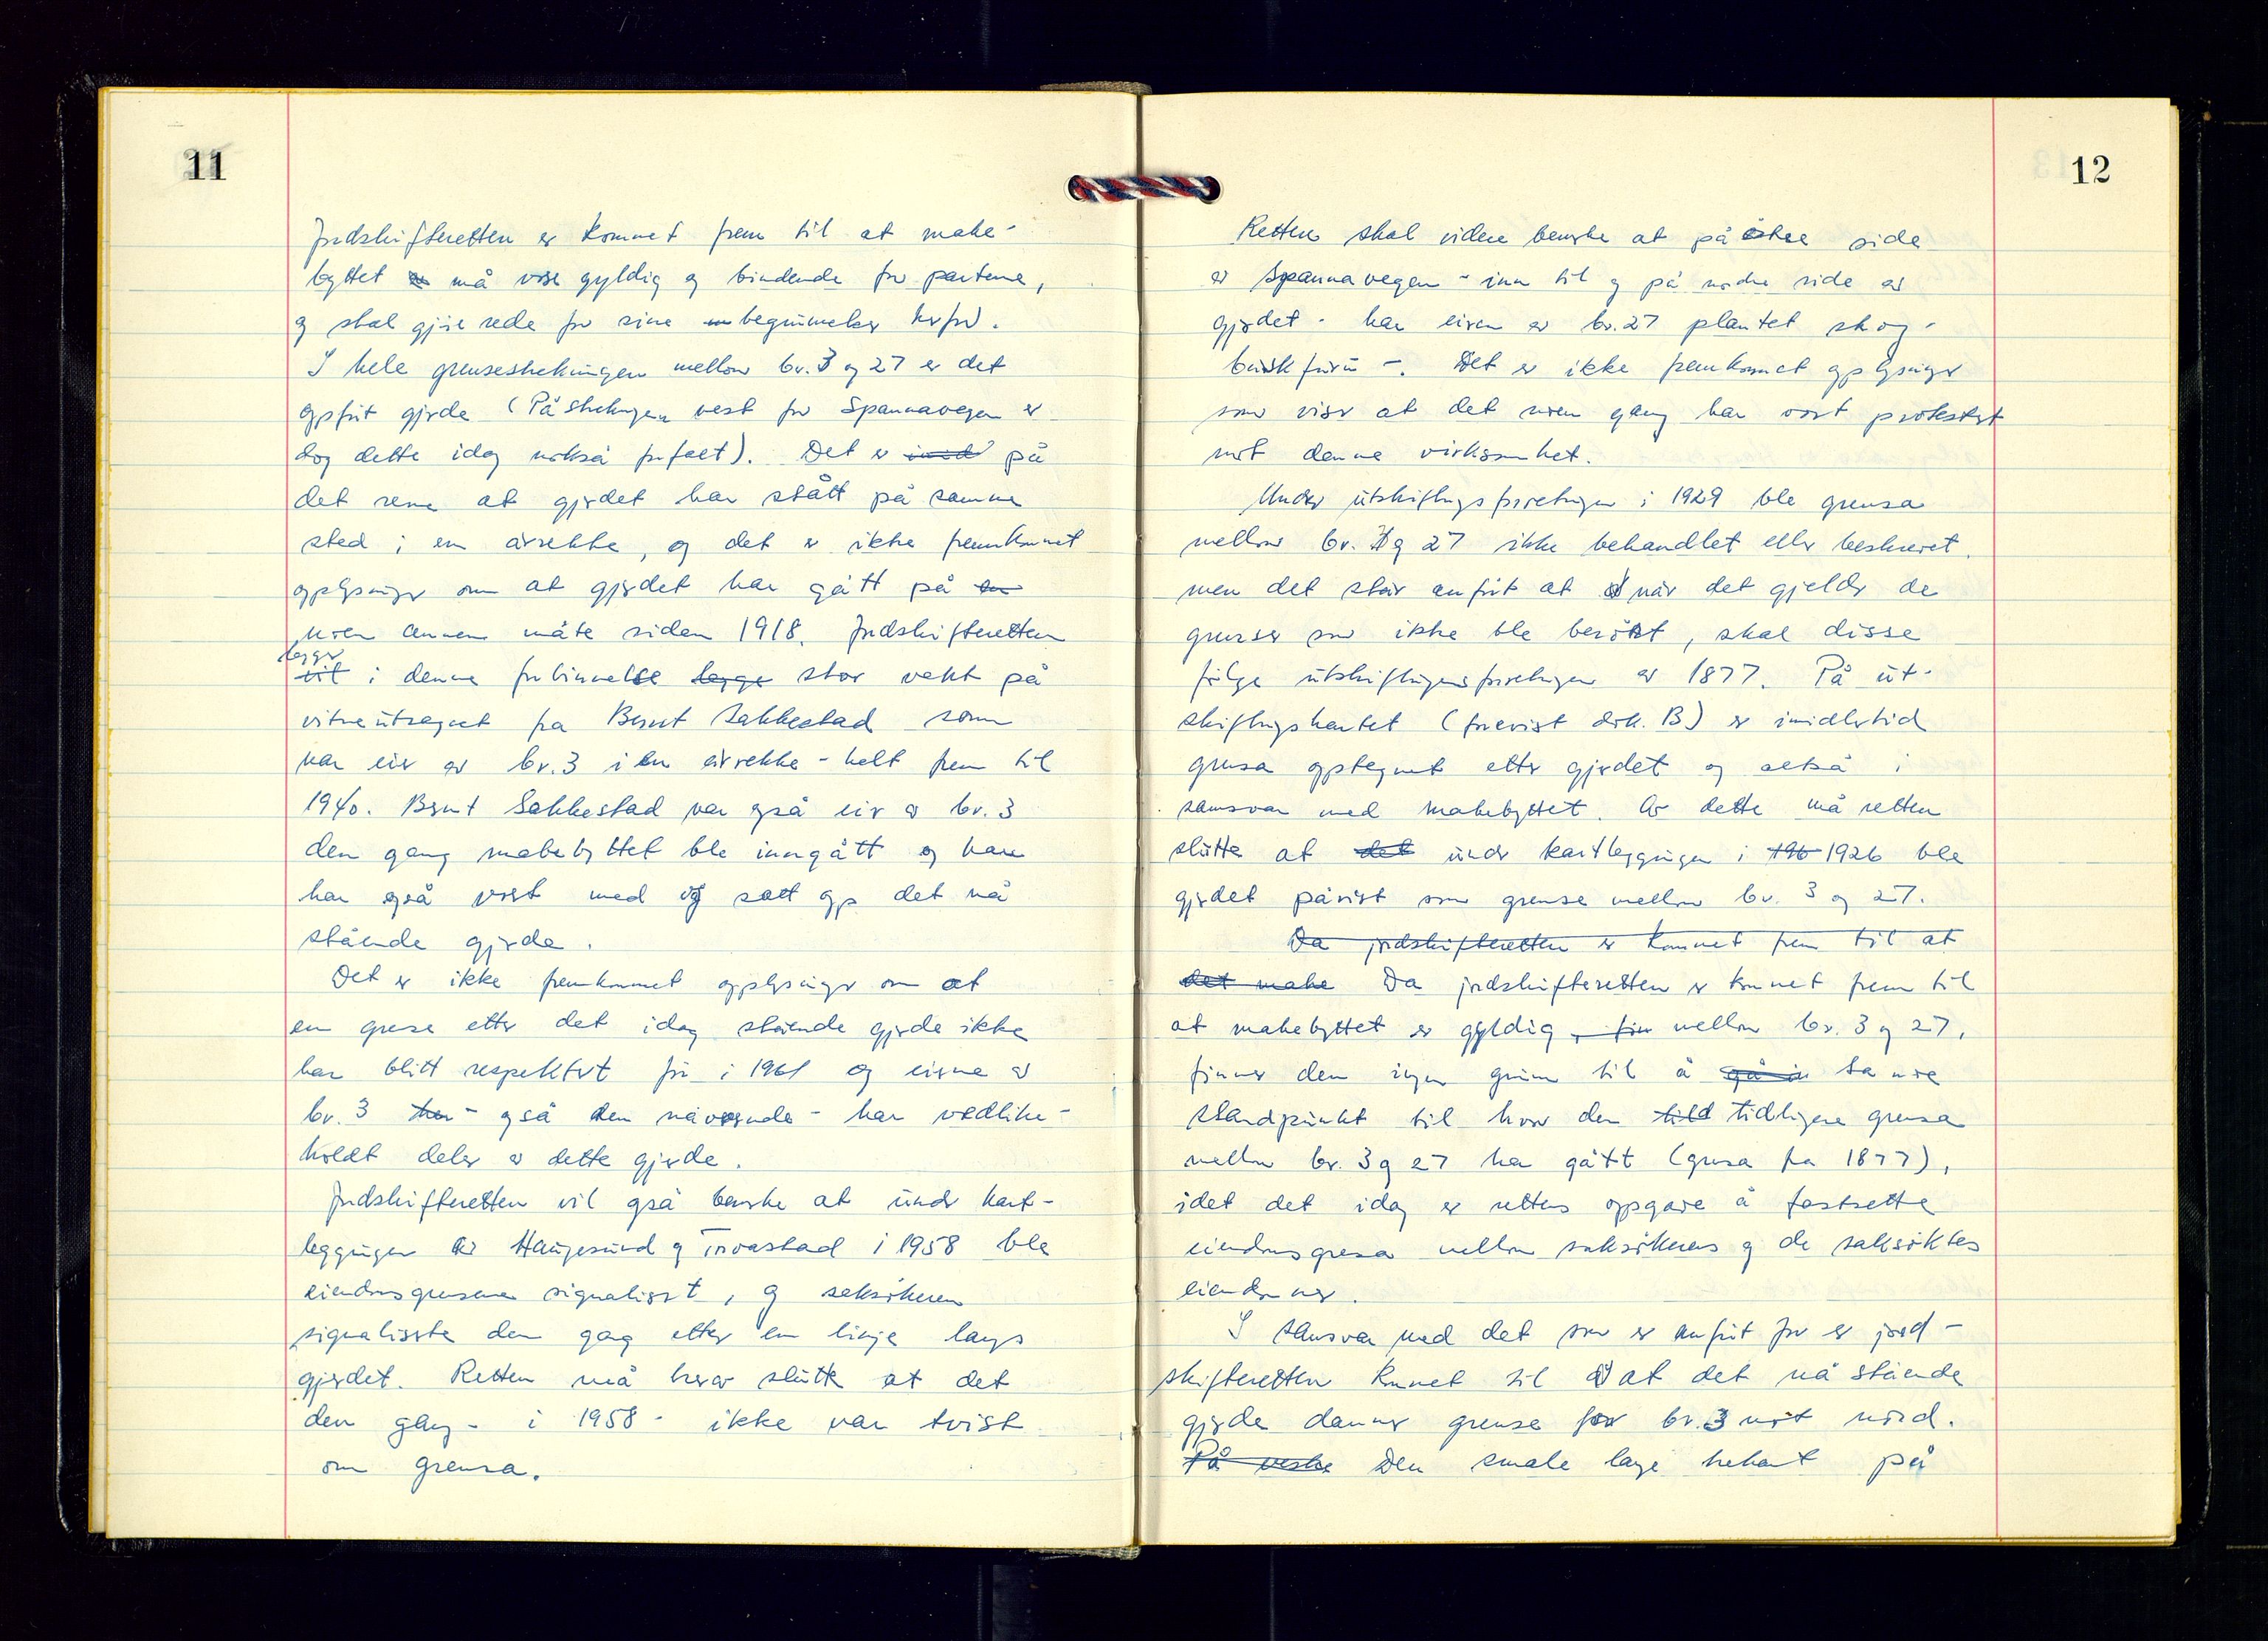 11
Jordskifteretten er kommet frem til at make-
byttet må være gyldig og bindende for partene,
og skal gjøre rede for sine begrunnelser herfor.
I hele grensestrekningen mellom br. 3 og 27 er det
oppført gjerde (På strekningen vest for Spannavegen er
dog dette idag nokså forfalt). Det er på
det rene at gjerdet har stått på samme
sted i en årrekke, og det er ikke fremkommet
opplysninger om at gjerdet har gått på
noen annen måte siden 1918. Jordskifteretten
legger
vil i denne forbindelse legge stor vekt på
vitneutsagnet fra Bernt Sakkestad som
var eier av br. 3 i en årrekke - helt frem til
1940. Bernt Sakkestad var også eier av br. 3
den gang makebyttet ble inngått og han
har også vært med og satt opp det nå
stående gjerde.
Det er ikke fremkommet opplysninger om at
en grense etter det idag stående gjerde ikke
har blitt respektert før i 1961 og eierne av
br. 3 har - også den nåværende - har vedlike-
holdt deler av dette gjerde.
Jordskifteretten vil også bemerke at under kart-
leggingen av Haugesund og Torvastad i 1958 ble
eiendomsgrensene signalisert, og saksøkeren
signaliserte den gang etter en linje langs
gjerdet. Retten må herav slutte at det
den gang - i 1958 - ikke var tvist
om grensa.
12
Retten skal videre bemerke at på østre side
av Spannavegen - inn til og på nordre side av
gjerdet - har eieren av br. 27 plantet skog -
buskfuru -. Det er ikke fremkommet opplysninger
som viser at det noen gang har vært protestert
mot denne virksomhet.
Under utskiftningsforretningen i 1929 ble grensa
mellom br. 3 og 27 ikke behandlet eller beskrevet.
men det står anført at når det gjelder de
grenser som ikke ble berørt, skal disse
følge utskiftningsforretningen av 1877. På ut-
skiftningskartet (fremvist dok. B) er imidlertid
grensa opptegnet etter gjerdet og altså i
samsvar med makebyttet. Av dette må retten
slutte at det under kartleggingen i 196 1926 ble
gjerdet påvist som grense mellom br. 3 og 27.
Da jordskifteretten er kommet frem til at
det make Da jordskifteretten er kommet frem til
at makebyttet er gyldig, mellom br. 3 og 27,
finner den ingen grunn til å ta noe
standpunkt til hvor den tidligere grensa
mellom br. 3 og 27 har gått (grensa fra 1877),
idet det idag er rettens oppgave å fastsette
eiendomsgrensa mellom saksøkerens og de saksøktes
eiendommer.
I samsvar med det som er anført før er jord-
skifteretten kommet til at det nå stående
gjerde danner grense for br. 3 mot nord.
På vestre Den smale lange trekant på